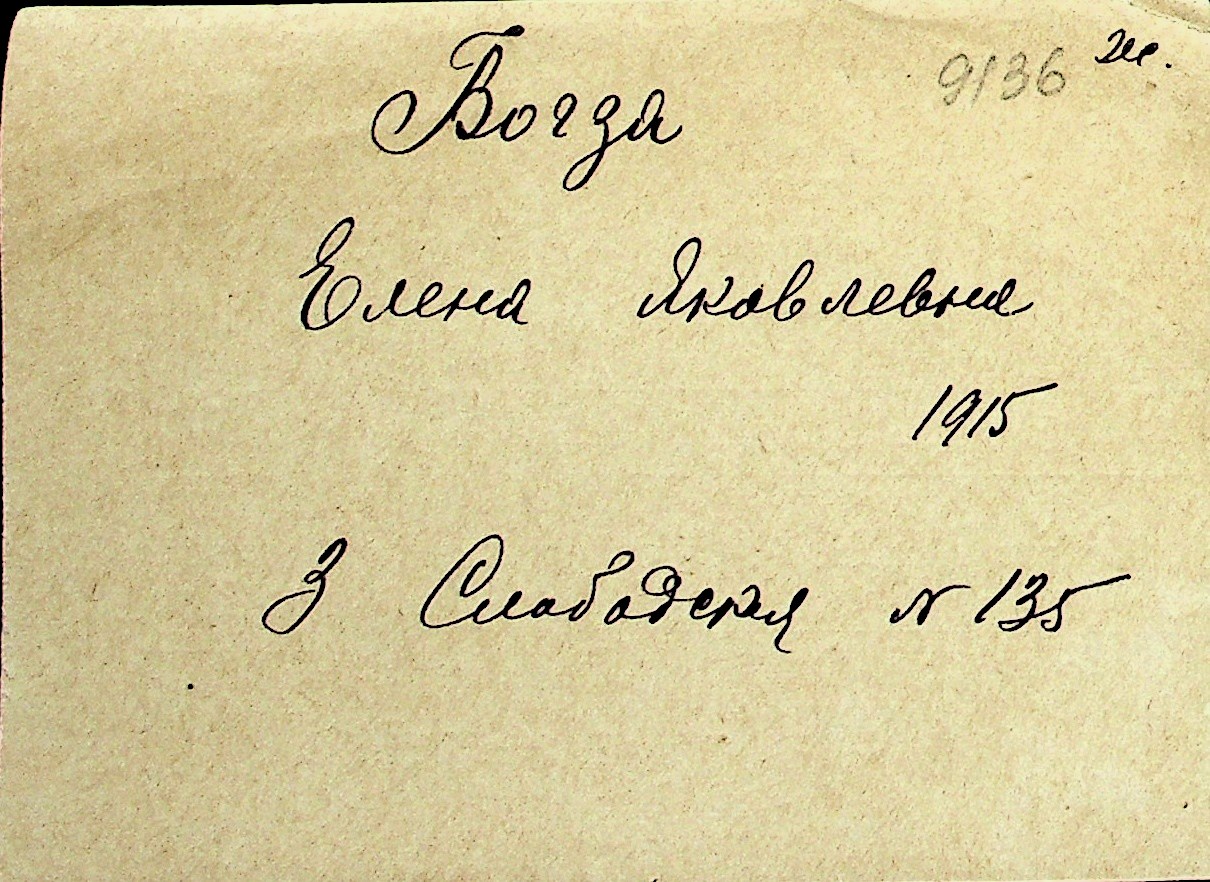 9136 ж.
Богза
Елена Яковлевна
1915
3 Слободская N 135